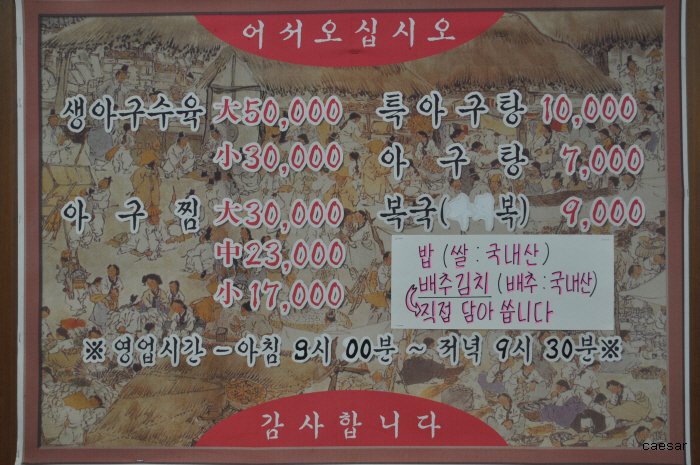 어서오십시오
생아구수육 大50,000
小30,000
아구찜 大30,000
中23,000
小17,000
특아구탕 10,000
아구탕 7,000
복국( 복) 9,000
밥 (쌀 : 국내산)
배추김치 (배추 : 국내산)
직접 담아 씁니다
※영업시간 - 아침 9시 00분 ~ 저녁 9시 30분※
감사합니다
caesar